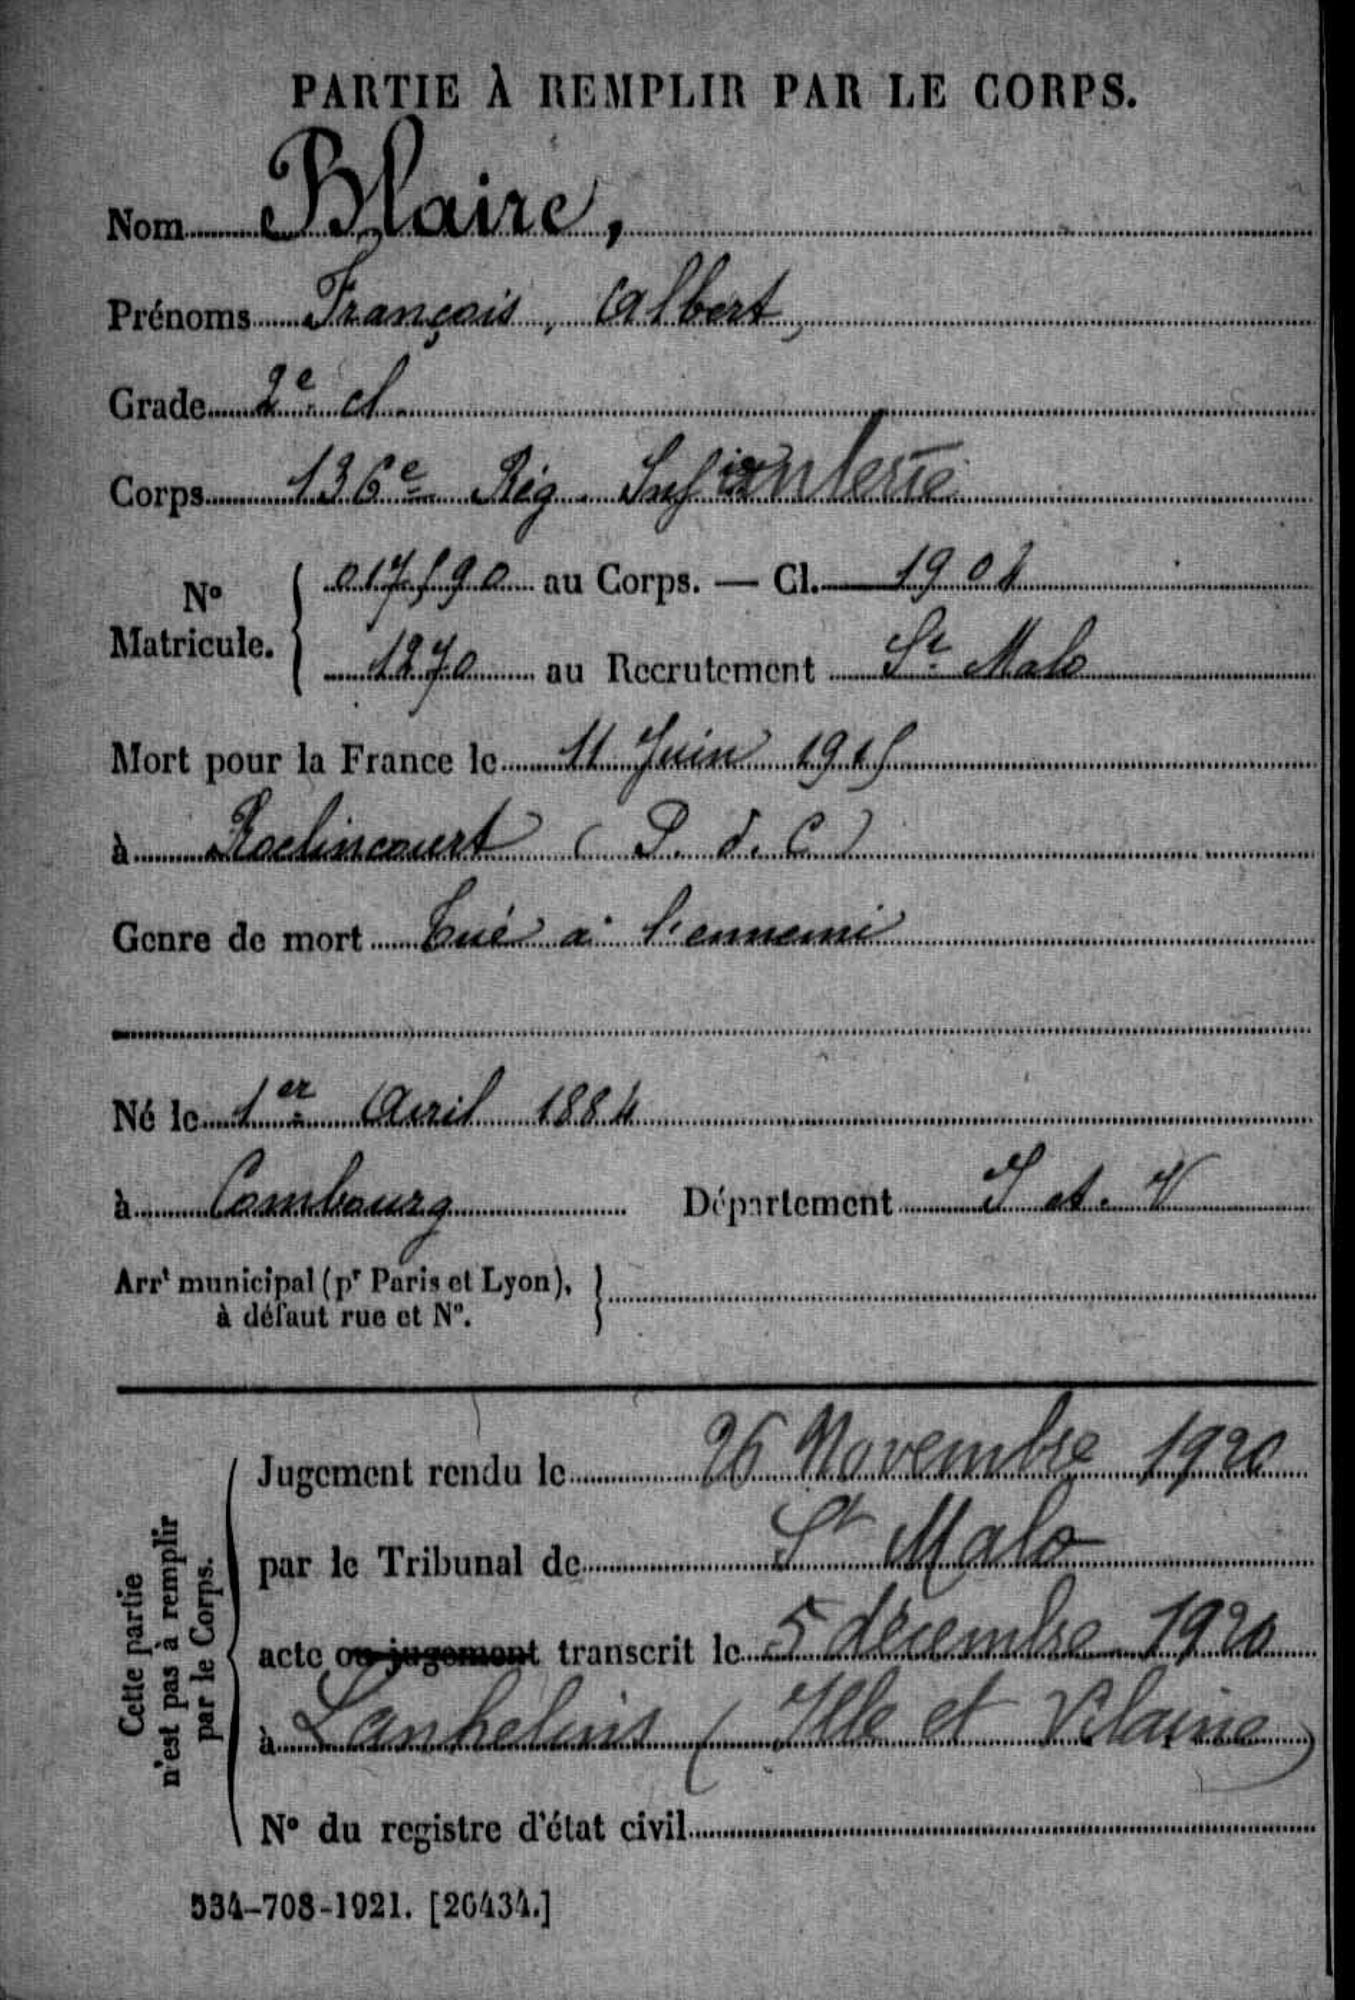 PARTIE À REMPLIR PAR LE CORPS.
Nom Blaire,
Prénoms François, Albert,
Grade 2e cl.
Corps 136e Rég. Infanterie
No Matricule. { 017590 au Corps. — Cl. 1904
1270 au Recrutement St. Malo
Mort pour la France le 11 Juin 1915
à Roclincourt (P. d. C)
Genre de mort Tué à l'ennemi
Né le 1er Avril 1884
à Combourg Département I et. V
Arrt municipal (pr Paris et Lyon), }
à défaut rue et No.
Cette partie
n'est pas à remplir
par le Corps.
Jugement rendu le 26 Novembre 1920
par le Tribunal de St Malo
acte ou jugement transcrit le 5 décembre 1920
à Lanhelin (Ille et Vilaine)
No du registre d'état civil
534-708-1921. [26434.]